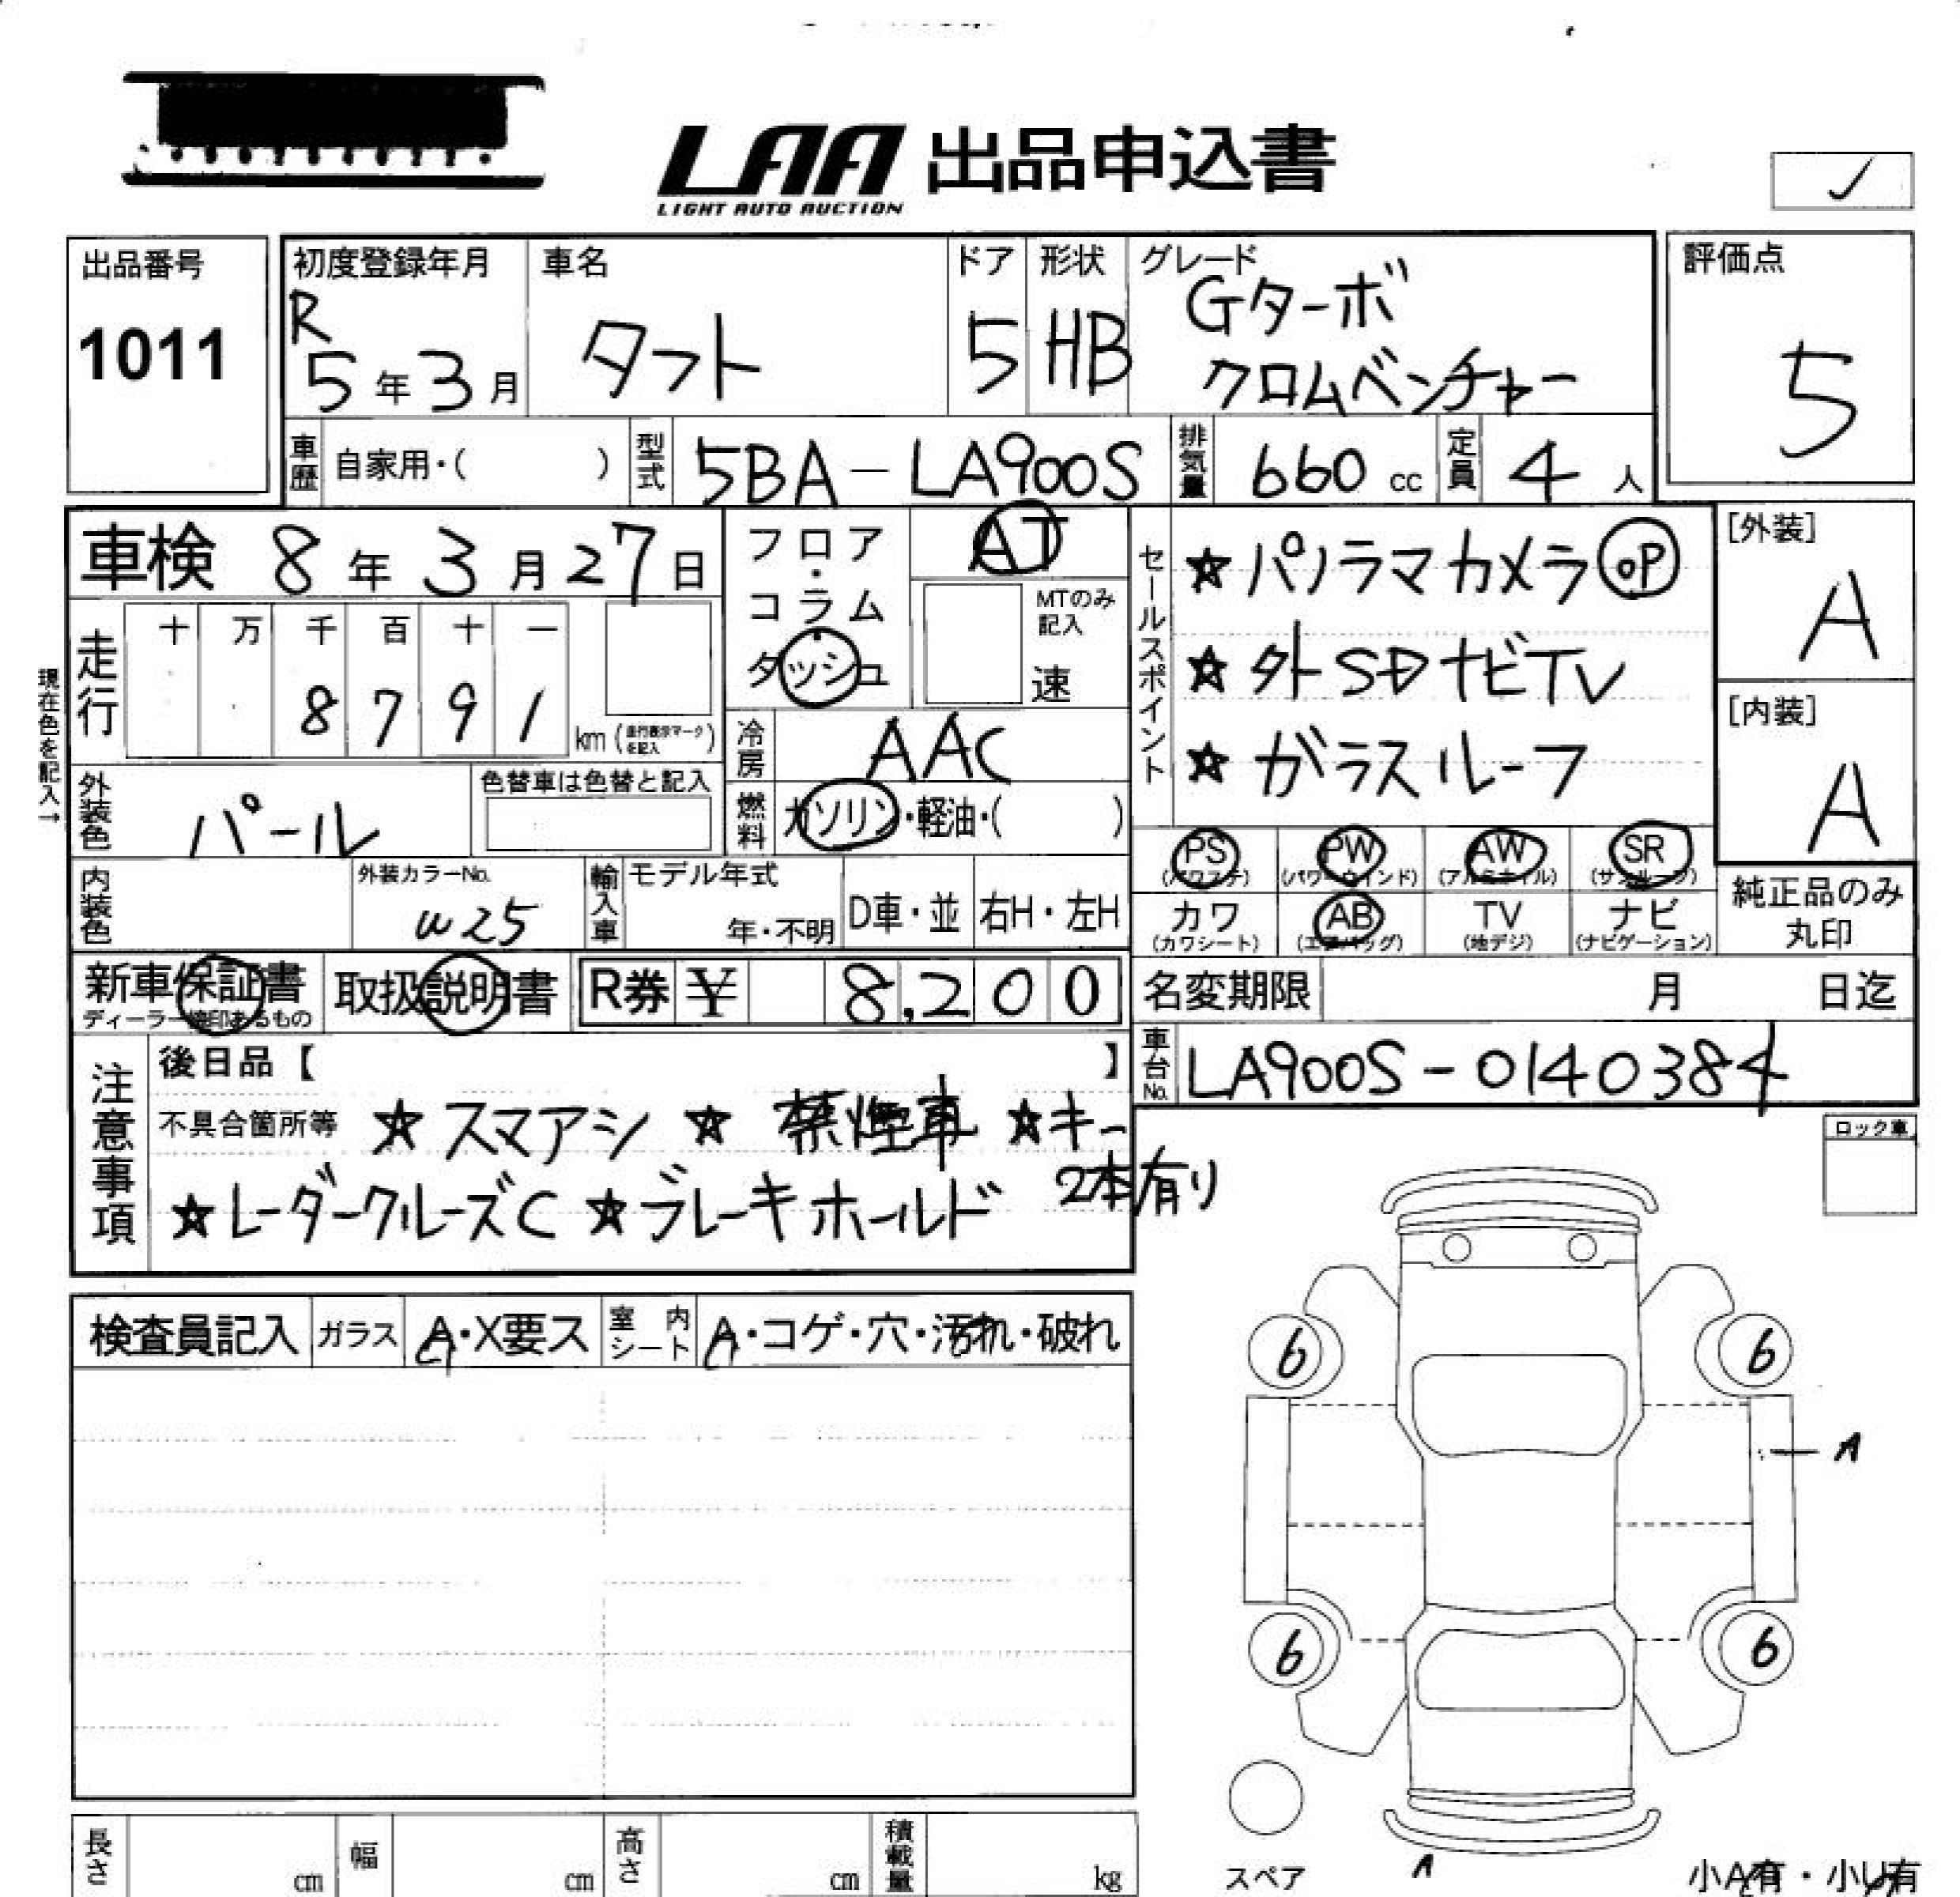 LAA 出品申込書
LIGHT AUTO AUCTION
出品番号
1011
初度登録年月
R
5年3月
車名
タフト
ドア
5
形状
HB
グレード
Gターボ
クロムベンチャー
評価点
5
車歴 自家用・( )
型式 5BA-LA900S
排気量 660cc
定員 4人
車検 8年3月27日
フロア・コラム
ダッシュ
AT
MTのみ記入
速
セールスポイント
☆パノラマカメラ OP
☆外SDナビTV
☆ガラスルーフ
[外装]
A
[内装]
A
現在色を記入→
走行
十 万 千 百 十 一
8 7 9 1 km (走行表示マークを記入)
冷房 AAC
外装色 パール
色替車は色替と記入
燃料 ガソリン・軽油・( )
PS (パワステ)
PW (パワーウインド)
AW (アルミホイル)
SR (サンルーフ)
カワ (カワシート)
AB (エアバッグ)
TV (地デジ)
ナビ (ナビゲーション)
純正品のみ
丸印
内装色
外装カラーNo.
W25
輸入車
モデル年式
年・不明
D車・並
右H・左H
新車保証書
ディーラー捺印あるもの
取扱説明書
R券 ¥ 8,200
名変期限 月 日迄
車台No. LA900S-0140384
注意事項
後日品【 】
不具合箇所等 ☆スマアシ ☆禁煙車 ☆キー
2本有り
☆レーダークルーズC ☆ブレーキホールド
ロック車
検査員記入
ガラス A・X要ス
室内シート A・コゲ・穴・汚れ・破れ
6 6
A
6 6
スペア
A
小A有・小U有
長さ cm
幅 cm
高さ cm
積載量 kg